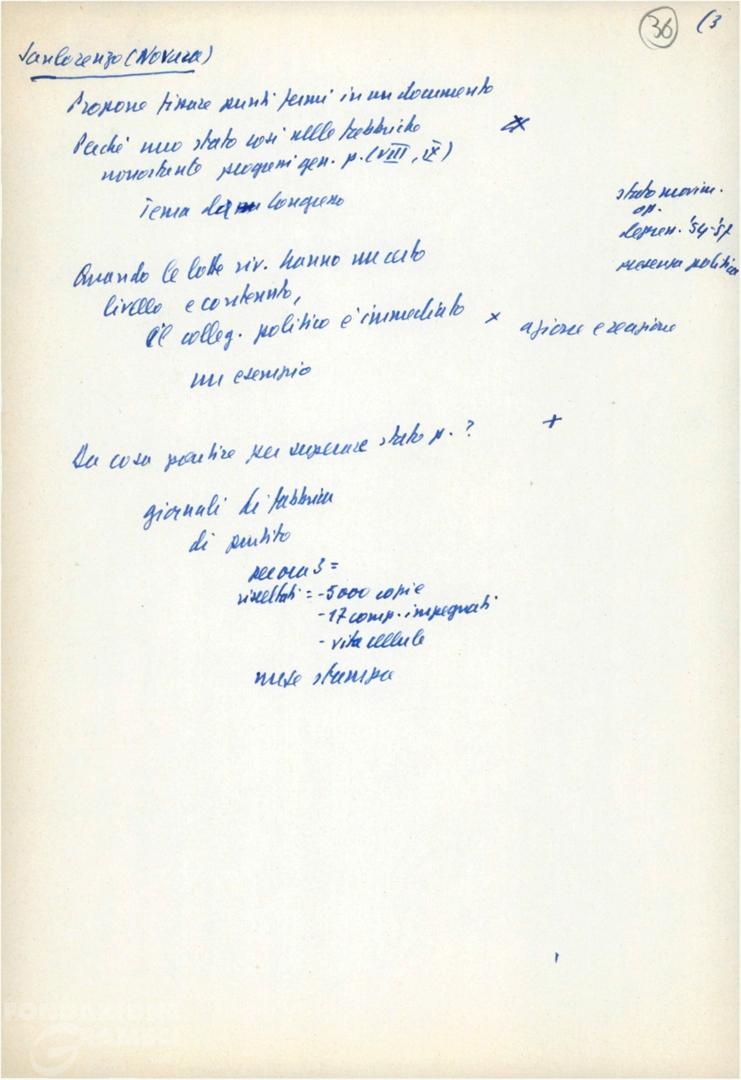 36 (3
Sanlorenzo (Novara)
Propone fissare punti fermi in un documento
Perché uno stato così nelle fabbriche
nonostante progressi gen. p. (VIII, IX)
Tema da un Congresso
stato movim.
op.
depress. '54-'57
presenza politica
Quando le lotte riv. hanno un certo
livello e contenuto,
il colleg. politico è immediato x azione e reazione
un esempio
Da cosa partire per superare stato p. ? +
giornali di fabbrica
di partito
per ora 3 =
risultati = - 5000 copie
- 17 comp. impegnati
- vita cellule
mese stampa
FONDAZIONE
GRAMSCI